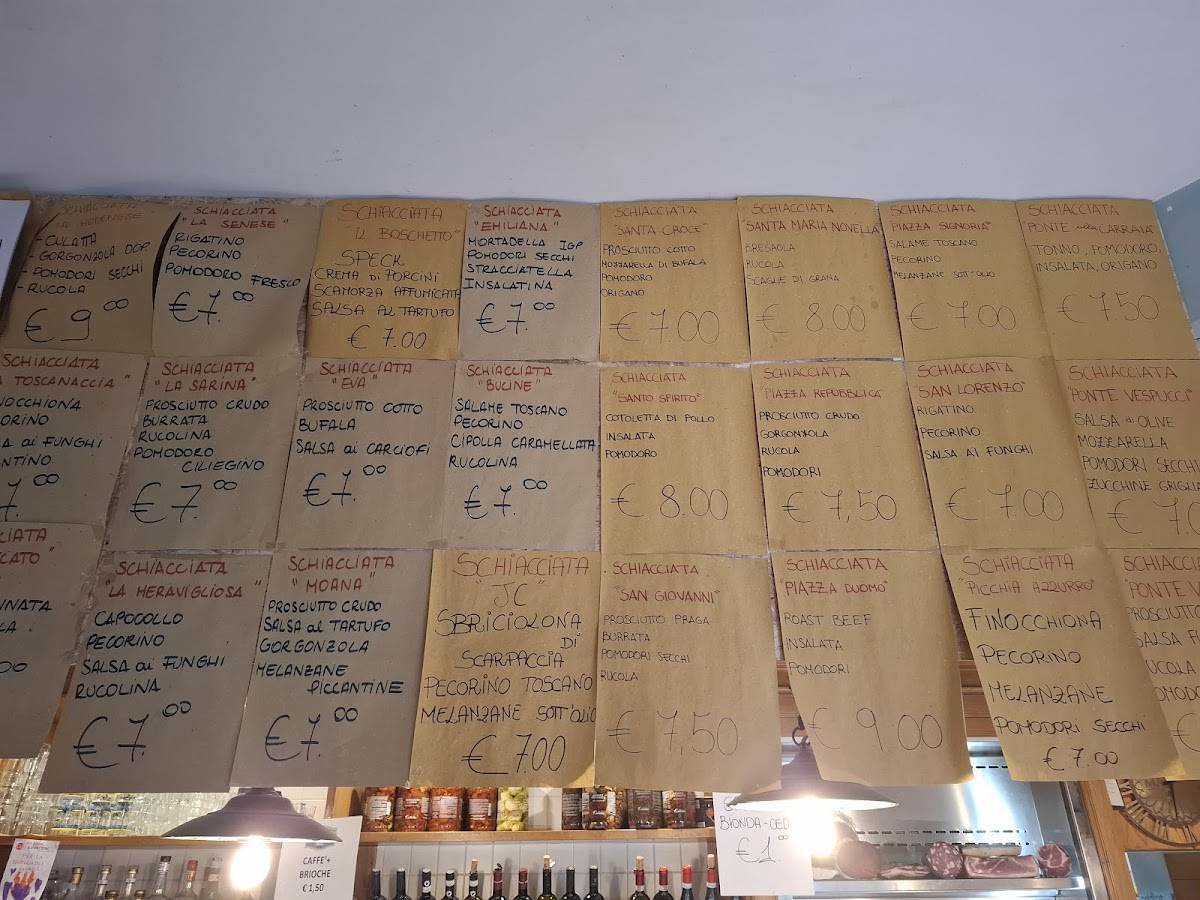 SCHIACCIATA
- CULATTA
- GORGONZOLA DOP
- POMODORI SECCHI
- RUCOLA
€ 9.00
SCHIACCIATA
"LA SENESE"
RIGATINO
PECORINO
POMODORO FRESCO
€ 7.00
SCHIACCIATA
"IL BOSCHETTO"
SPECK
CREMA DI PORCINI
SCAMORZA AFFUMICATA
SALSA AL TARTUFO
€ 7.00
SCHIACCIATA
"EMILIANA"
MORTADELLA IGP
POMODORI SECCHI
STRACCIATELLA
INSALATINA
€ 7.00
SCHIACCIATA
"SANTA CROCE"
PROSCIUTTO COTTO
MOZZARELLA DI BUFALA
POMODORO
ORIGANO
€ 7.00
SCHIACCIATA
"SANTA MARIA NOVELLA"
BRESAOLA
RUCOLA
SCAGLIE DI GRANA
€ 8.00
SCHIACCIATA
PIAZZA SIGNORIA"
SALAME TOSCANO
PECORINO
MELANZANE SOTT'OLIO
€ 7.00
SCHIACCIATA
PONTE alla CARRAIA"
TONNO, POMODORO,
INSALATA, ORIGANO
€ 7.50
SCHIACCIATA
TOSCANACCIA"
€ 7.00
SCHIACCIATA
"LA SARINA"
PROSCIUTTO CRUDO
BURRATA
RUCOLINA
POMODORO
CILIEGINO
€ 7.00
SCHIACCIATA
"EVA"
PROSCIUTTO COTTO
BUFALA
SALSA ai CARCIOFI
€ 7.00
SCHIACCIATA
"BUCINE"
SALAME TOSCANO
PECORINO
CIPOLLA CARAMELLATA
RUCOLINA
€ 7.00
SCHIACCIATA
"SANTO SPIRITO"
COTOLETTA DI POLLO
INSALATA
POMODORO
€ 8.00
SCHIACCIATA
"PIAZZA REPUBBLICA
PROSCIUTTO CRUDO
GORGONZOLA
RUCOLA
POMODORI
€ 7,50
SCHIACCIATA
"SAN LORENZO"
RIGATINO
PECORINO
SALSA AI FUNGHI
€ 7.00
SCHIACCIATA
"PONTE VESPUCCI"
SALSA di OLIVE
MOZZARELLA
POMODORI SECCHI
ZUCCHINE GRIGLIA
€ 7.0
SCHIACCIATA
"LA MERAVIGLIOSA"
CAPOCOLLO
PECORINO
SALSA ai FUNGHI
RUCOLINA
€ 7.00
SCHIACCIATA
"MOANA"
PROSCIUTTO CRUDO
SALSA al TARTUFO
GORGONZOLA
MELANZANE
PICCANTINE
€ 7.00
SCHIACCIATA
"JC"
SBRICIOLONA
DI
SCARPACCIA
PECORINO TOSCANO
MELANZANE SOTT'OLIO
€ 7.00
SCHIACCIATA
"SAN GIOVANNI"
PROSCIUTTO PRAGA
BURRATA
POMODORI SECCHI
RUCOLA
€ 7,50
SCHIACCIATA
"PIAZZA DUOMO"
ROAST BEEF
INSALATA
POMODORI
€ 9.00
SCHIACCIATA
"PICCHIA AZZURRO"
FINOCCHIONA
PECORINO
MELANZANE
POMODORI SECCHI
€ 7.00
SCHIACCI
"PONTE
PROSCIUTT
SALSA
RUCOLA
€
CAFFE'+
BRIOCHE
€ 1,50
BIONDA-CED
€ 1